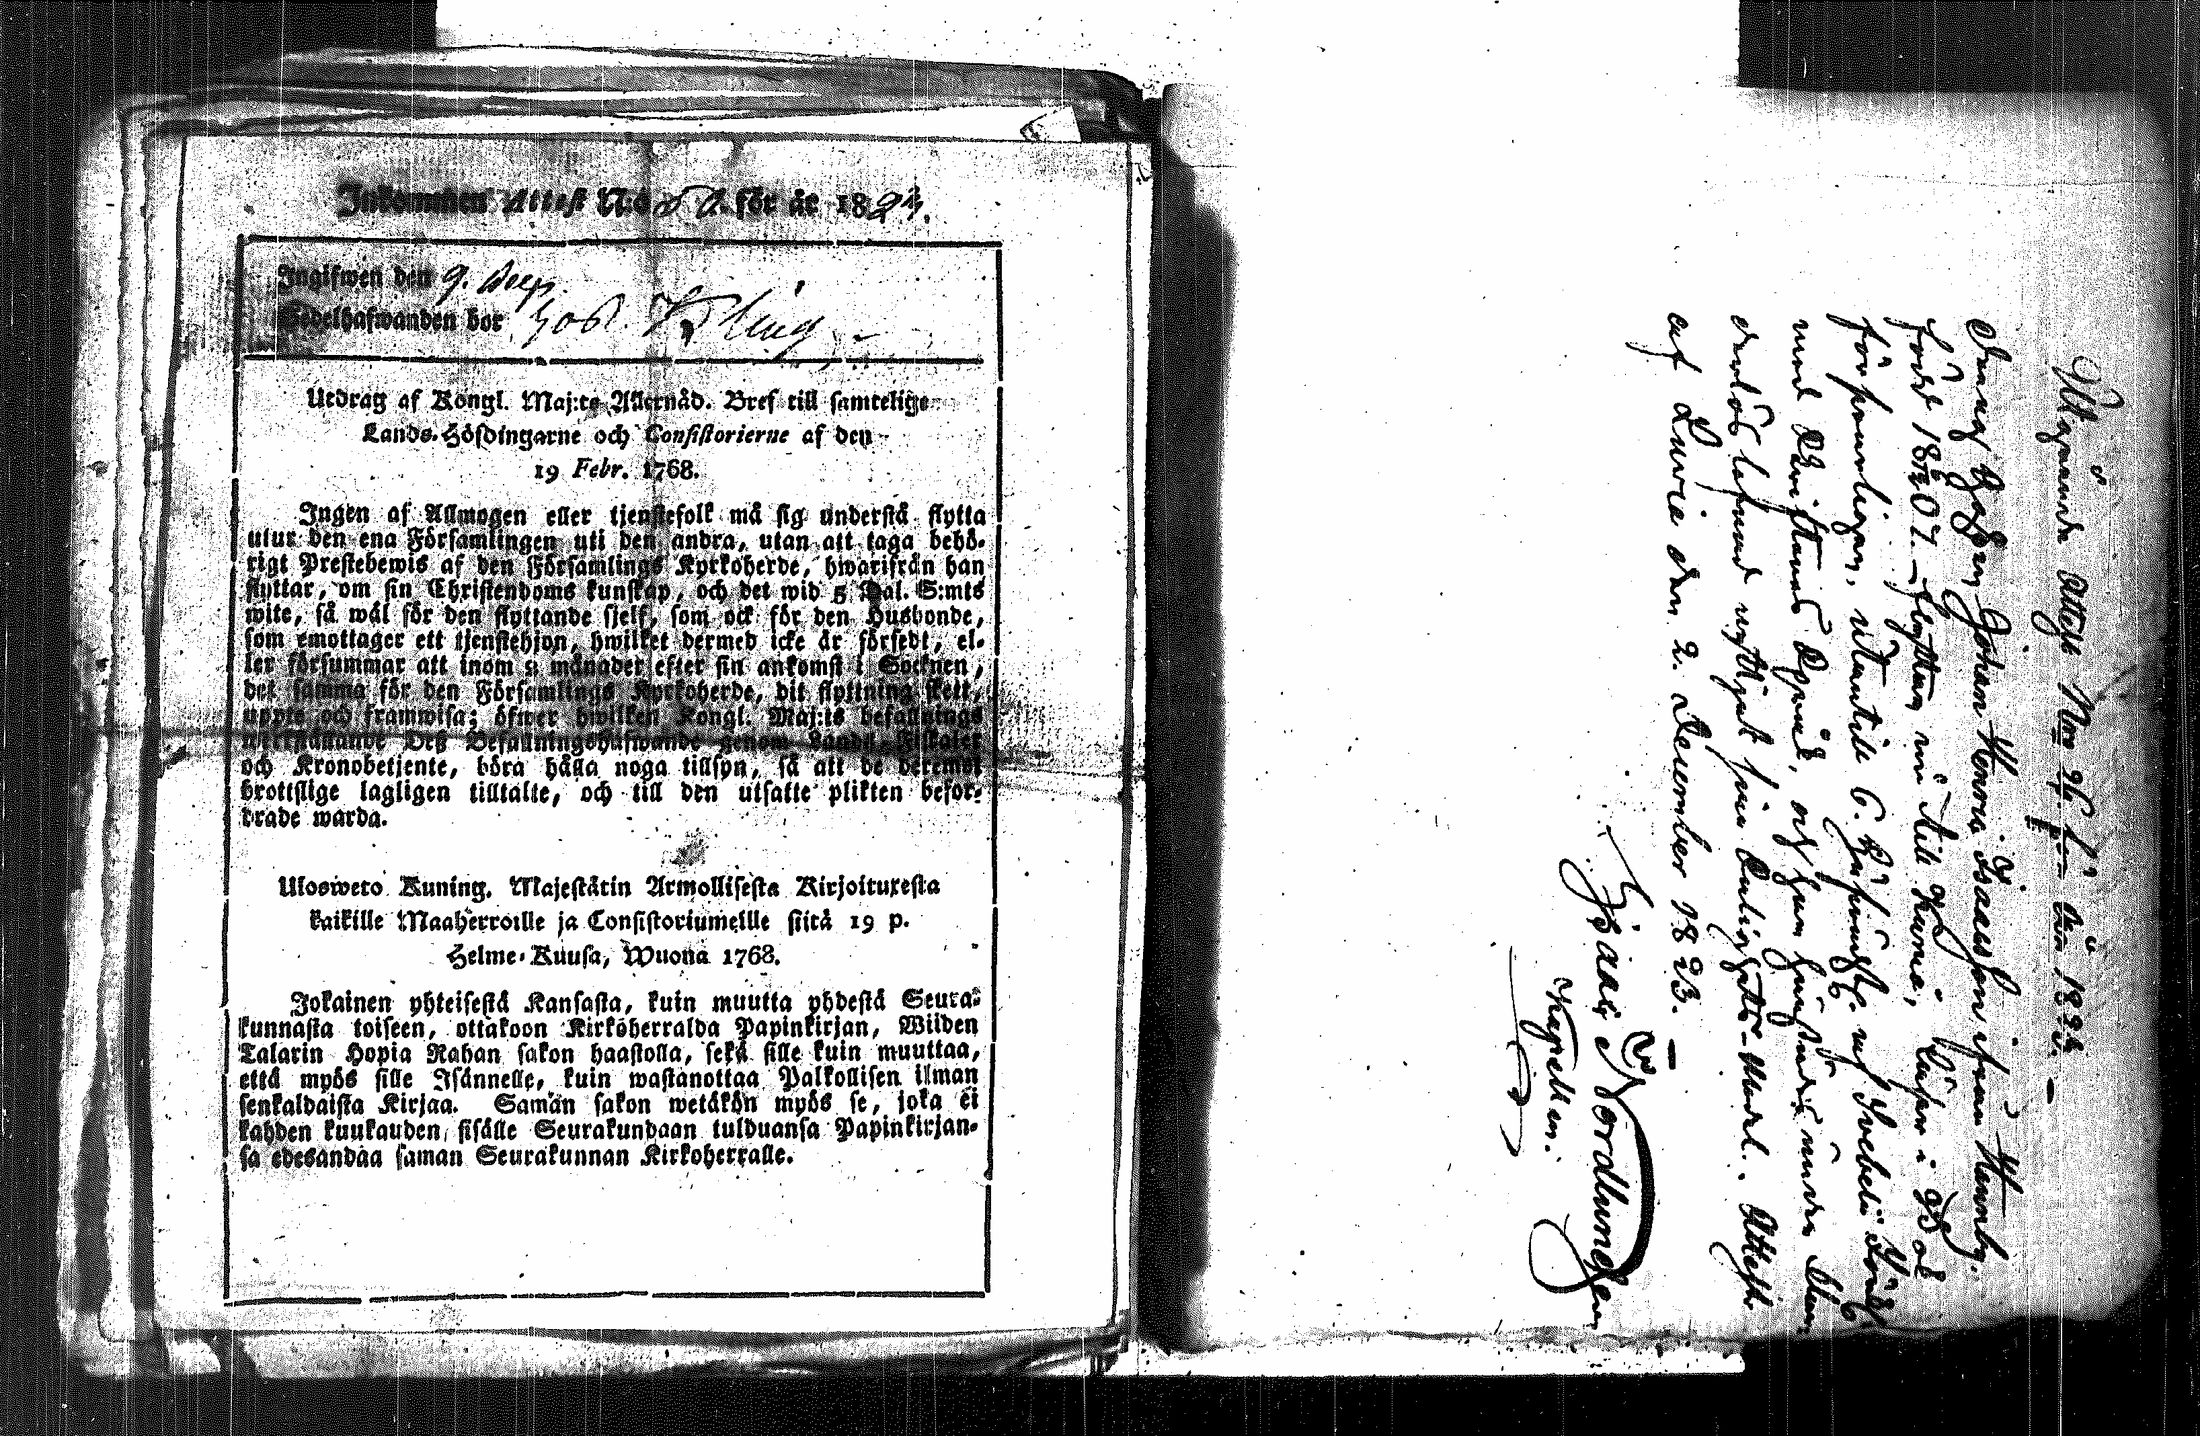 Inkommen Attest N:o 50. för år 1823.
Ingifwen den 9. Decp.
Sedelhafwanden bor hos Kling, -
Utdrag af Kongl. Maj:ts Allernåd. Bref till samtelige
Lands-Höfdingarne och Consistorierne af den
19 Febr. 1768.
Ingen af Allmogen eller tjenstefolk må sig understå flytta
utur den ena Församlingen uti den andra, utan att taga behö-
rigt Prestebewis af den Församlings Kyrkoherde, hwarifrån han
flyttar, om sin Christendoms kunskap, och det wid 5 Dal. S:mts
wite, så wäl för den flyttande sjelf, som ock för den Husbonde,
som emottager ett tjenstehjon, hwilket dermed icke är försedt, el-
ler försummar att inom 2 månader efter sin ankomst i Socknen,
det samma för den Församlings Kyrkoherde, dit flyttning skett,
uppte och framwisa; öfwer hwilken Kongl. Maj:ts befallnings
werkställande Deß Befallningshafwande genom Lands-Fiskaler
och Kronobetjente, böra hålla noga tillsyn, så att de deremot
brottslige lagligen tilltalte, och till den utsatte plikten befor-
drade warda.
Ulosweto Kuning. Majestätin Armollisesta Kirjoituxesta
kaikille Maaherroille ja Consistoriumeille siitä 19 p.
Helme-Kuusa, Wuona 1768.
Jokainen yhteisestä Kansasta, kuin muutta yhdestä Seura-
kunnasta toiseen, ottakoon Kirkoherralda Papinkirjan, Wiiden
Talarin Hopia Rahan sakon haastolla, sekä sille kuin muuttaa,
että myös sille Isännelle, kuin wastanottaa Palkollisen ilman
senkaldaista Kirjaa. Samän sakon wetäkön myös se, joka ei
kahden kuukauden sisälle Seurakundaan tulduansa Papinkirjan-
sa edesandaa saman Seurakunnan Kirkoherralle.
Utgående Attest Nro 96 för år 1823. -
Drängen Johan Henric Isaacsson ifrån
född 1807. - flyttar nu till Kumo, läser i
försvarligen, utantill
med Skriftens Språk, och
derlös lefvnad nyttjat sin Salighets-Medel. Attest.
af Luvia den 2. December 1823. -
Isaac Nordlund
Kapellan.